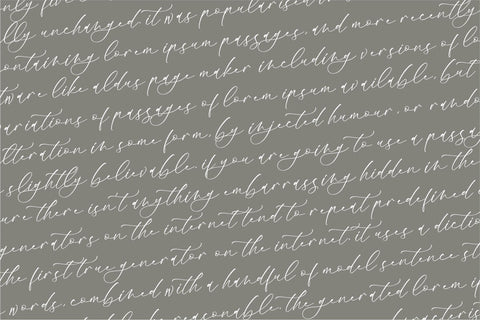 only five
lly unchanged. it was popularised in
ontaining lorem ipsum passages, and more recently
tware like aldus page maker including versions of lo
ariations of passages of lorem ipsum available, but
lteration in some form, by injected humour, or rando
slightly believable. if you are going to use a passa
ure there isn't anything embarrassing hidden in the
generators on the internet tend to repeat predefined
the first true generator on the internet. it uses a dictio
words, combined with a handful of model sentence st
reasonable. the generated lorem i
characteris